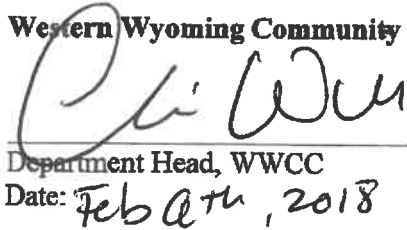 Western Wyoming Community
Department Head, WWCC
Date: Feb 2018